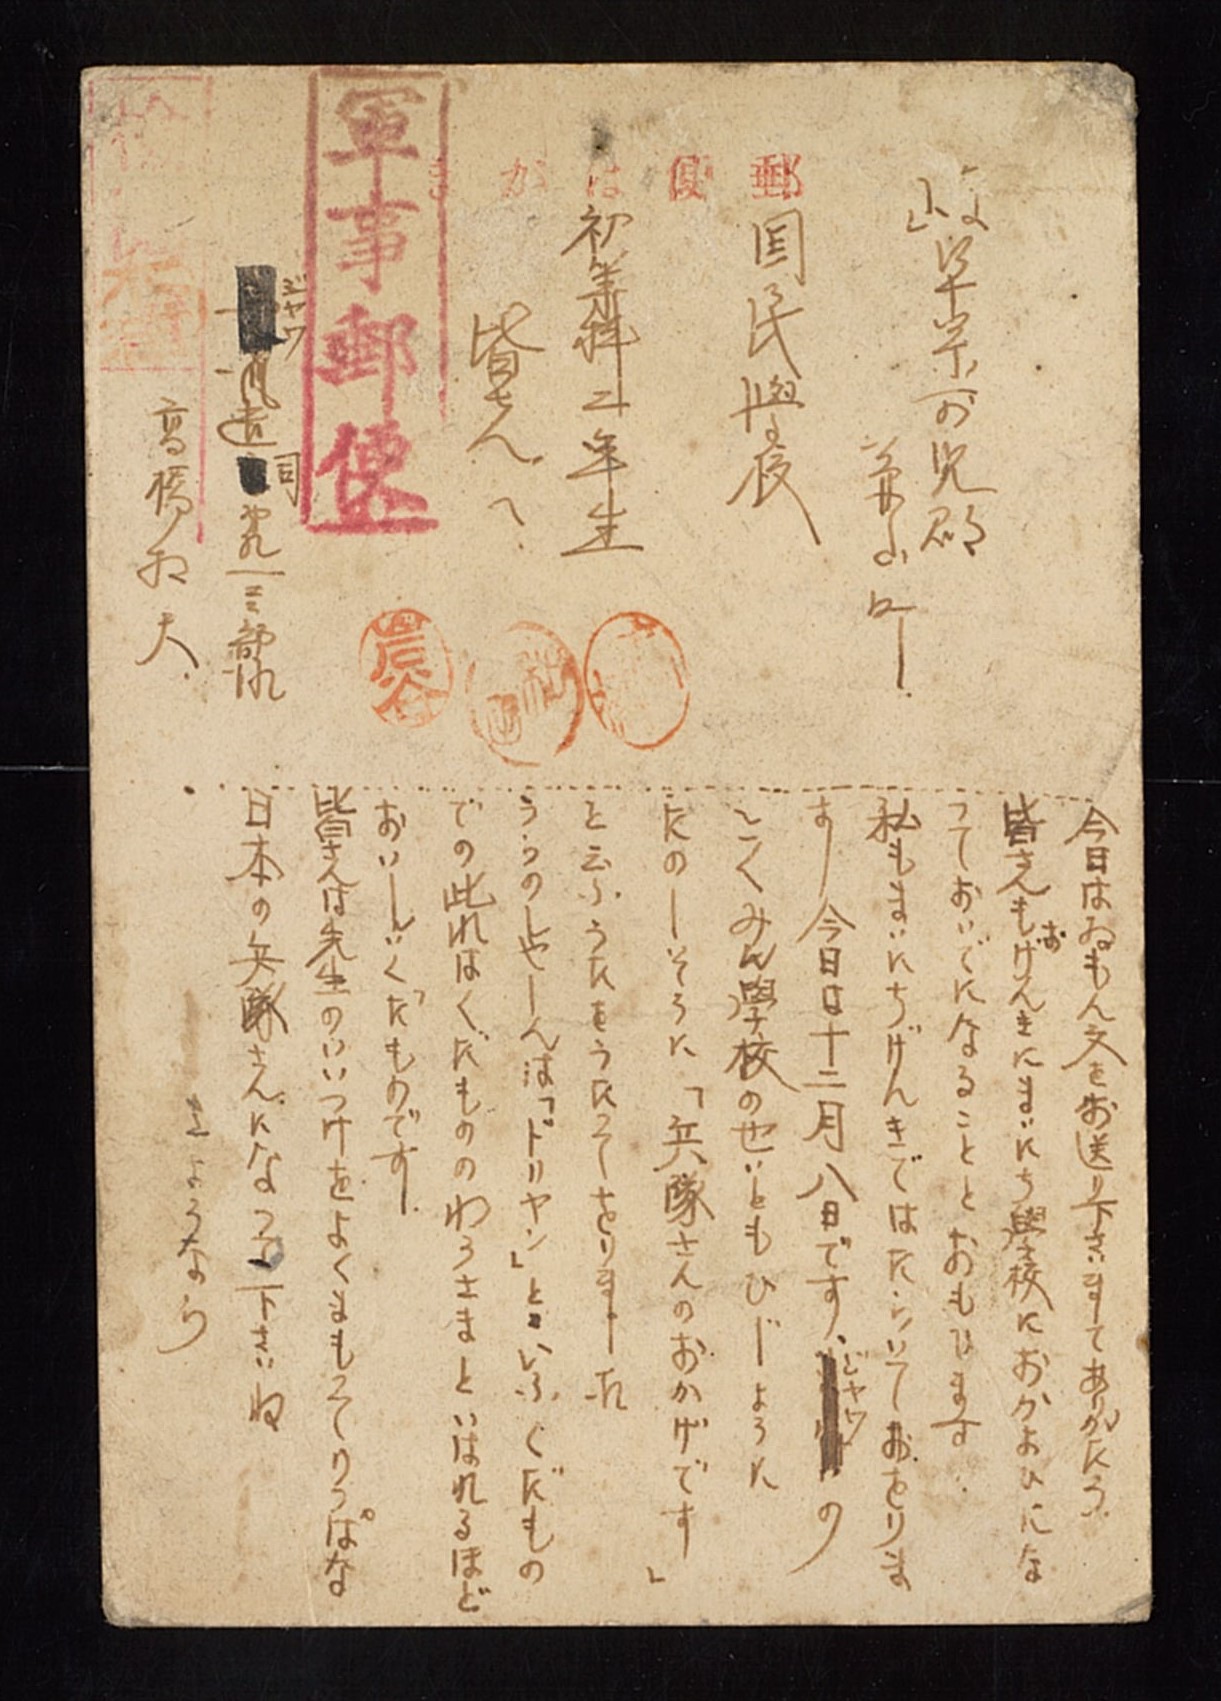 郵便はがき
岐阜県可児郡
兼山町
国民學校
初等科二年生
皆さんへ
軍事郵便
ジャワ
髙橋
今日はゐもん文をお送り下さいましてありがたう
皆さんもおげんきにまいにち學校におかよひにな
つておいでになることとおもひます
私もまいにちげんきではたらいておをりま
す 今日は十二月八日です、ジャワの
こくみん學校のせいともひじょうに
たのしそうに「兵隊さんのおかげです」
と云ふうたをうたつてをりました
うらのしゃしんは「ドリヤン」といふくだもの
での此れはくだもののわうさまといはれるほど
おいしいくだものです
皆さんは先生のいいつけをよくまもつてりつぱな
日本の兵隊さんになつて下さいね
さようなら